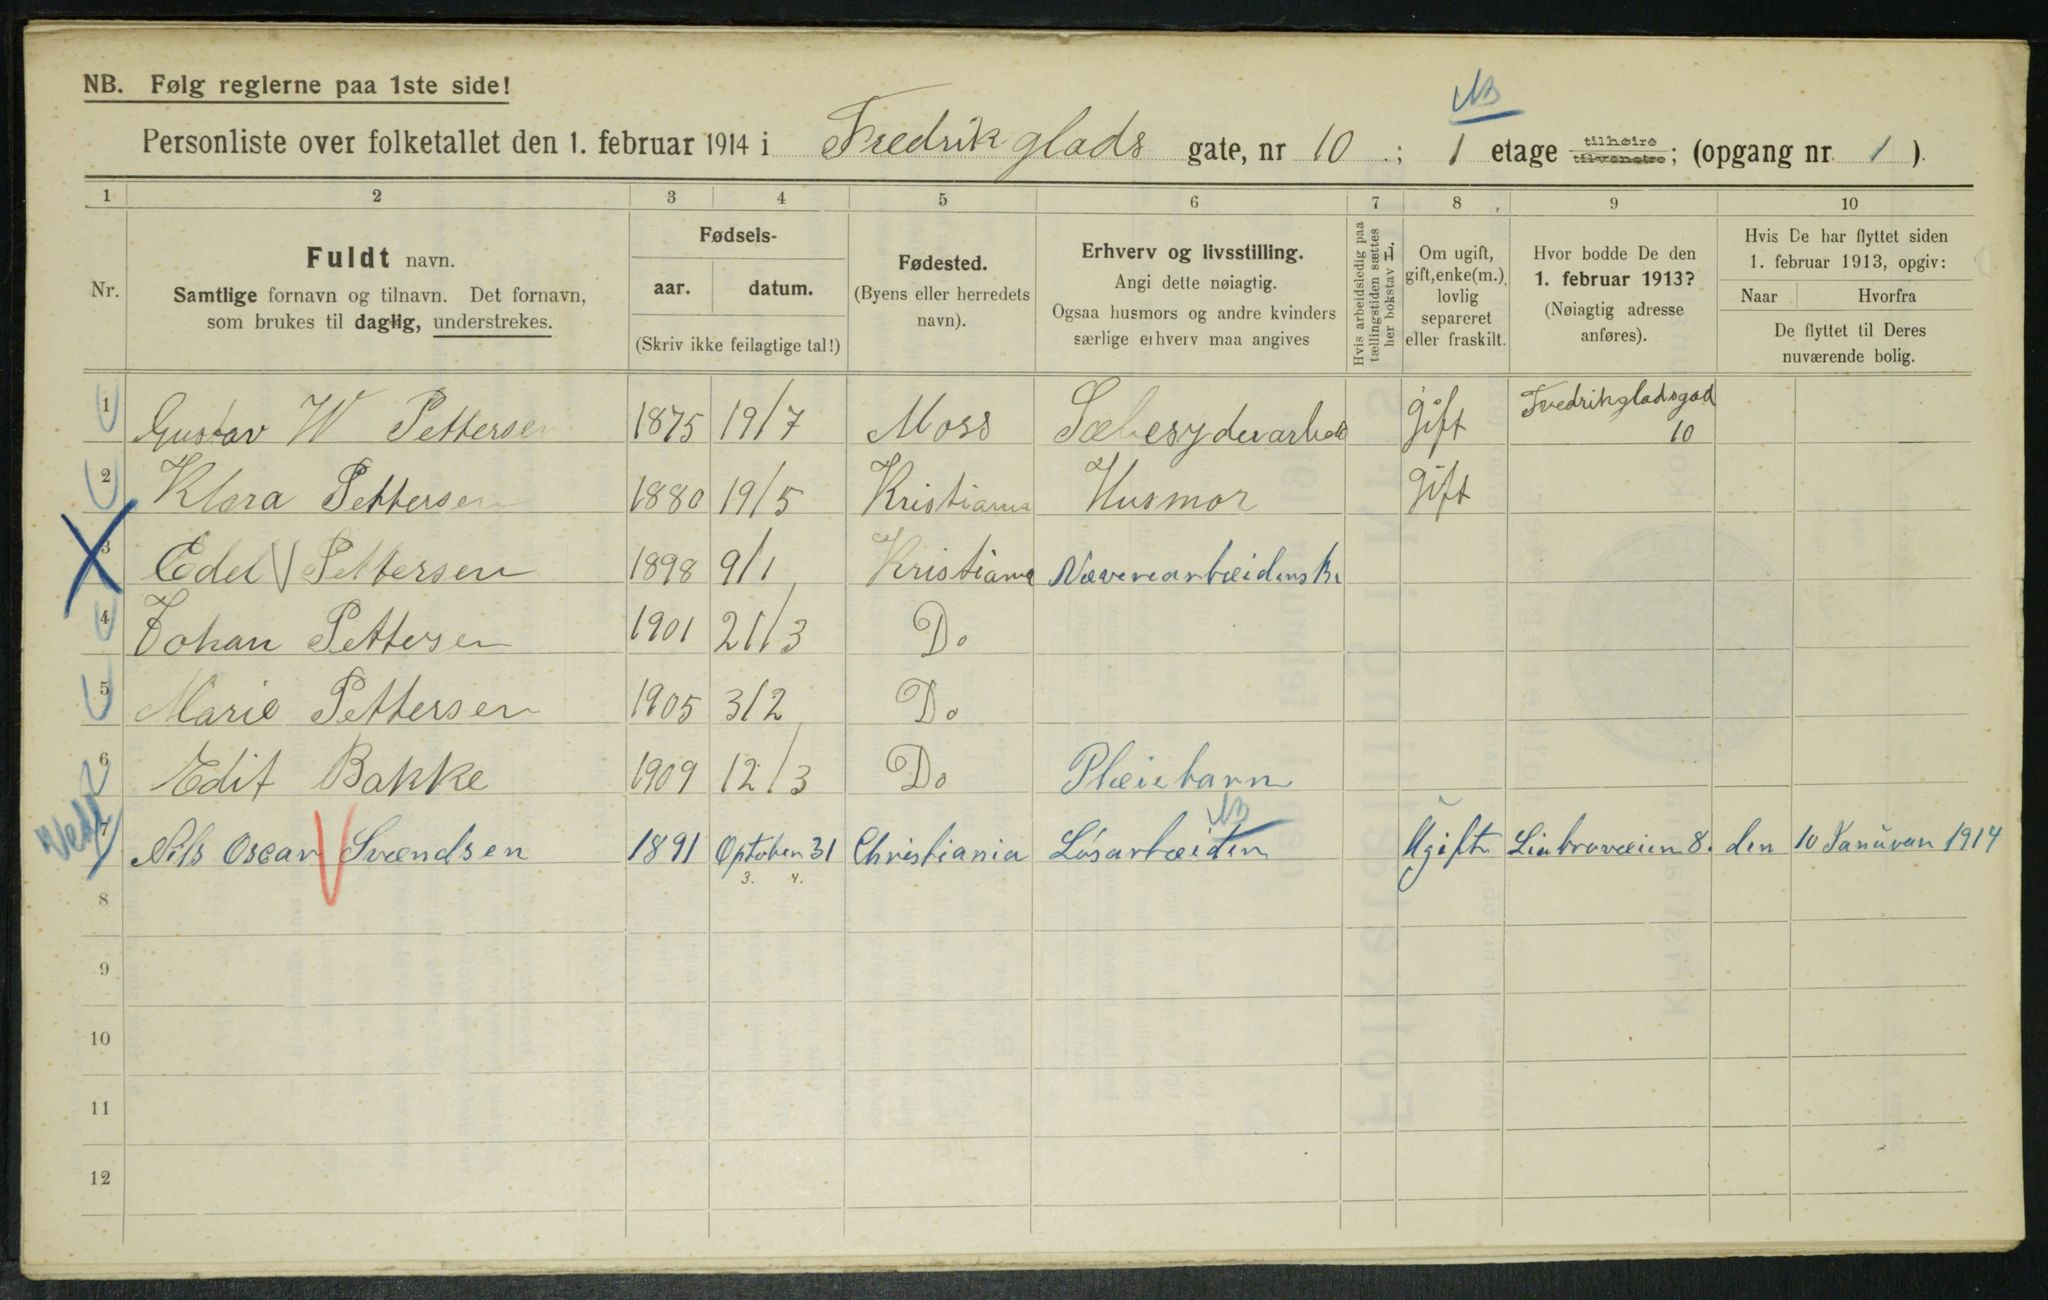 NB. Følg reglerne paa 1ste side!
NB
Personliste over folketallet den 1. februar 1914 i Fredrikglads gate, nr 10 ; 1 etage tilhøire tilvenstre; (opgang nr. 1 ).
1 2 3 4 5 6 7 8 9 10
Nr.
Fuldt navn.
Samtlige fornavn og tilnavn. Det fornavn,
som brukes til daglig, understrekes.
Fødsels-
aar. datum.
(Skriv ikke feilagtige tal!)
Fødested.
(Byens eller herredets
navn).
Erhverv og livsstilling.
Angi dette nøiagtig.
Ogsaa husmors og andre kvinders
særlige erhverv maa angives
Hvis arbeidsledig paa
tællingstiden sættes
her bokstav L.
Om ugift,
gift, enke(m.),
lovlig
separeret
eller fraskilt.
Hvor bodde De den
1. februar 1913?
(Nøiagtig adresse
anføres).
Hvis De har flyttet siden
1. februar 1913, opgiv:
Naar Hvorfra
De flyttet til Deres
nuværende bolig.
1 Gustav W Pettersen 1875 19/7 Moss Sæbesyderarbeid gift Fredrikgladsgad
10
2 Klara Pettersen 1880 19/5 Kristiania Husmor gift
3 Edel Pettersen 1898 9/1 Kristiania
4 Johan Pettersen 1901 21/3 Do
5 Marie Pettersen 1905 3/2 Do
6 Edit Bakke 1909 12/3 Do Pleiebarn
NB
7 Nils Oscar Svendsen 1891 Optober 31 Christiania Løsarbeider Ugift Liabroveien 8. den 10 Januvar 1914
3. 4.
8
9
10
11
12